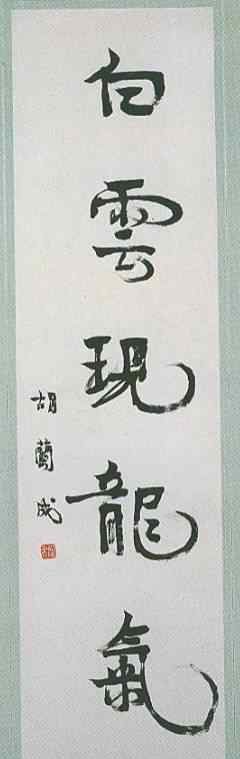 白雲現龍氣
胡蘭成